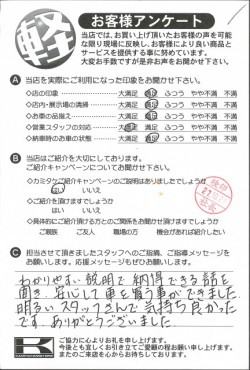 軽
お客様アンケート
当店では、お買い上げ頂いたお客様の声を可能
な限り現場に反映し、お客様により良い商品と
サービスを提供する事に努めています。
大変お手数ですが是非お声をお聞かせ下さい。
A 当店を実際にご利用になった印象をお聞かせ下さい。
◇店の印象 大満足 満足 ふつう やや不満 不満
◇店内・展示場の清掃 大満足 満足 ふつう やや不満 不満
◇お車の品揃え 大満足 満足 ふつう やや不満 不満
◇営業スタッフの対応 大満足 満足 ふつう やや不満 不満
◇納車時のお車の状態 大満足 満足 ふつう やや不満 不満
B 当店はご紹介を大切にしております。
ご紹介キャンペーンについてお聞かせ下さい。
◇カミタケご紹介キャンペーンのご説明はありましたでしょうか
はい いいえ
◇ご紹介を頂けますでしょうか
はい いいえ
◇具体的にご紹介頂ける方とのご関係をお聞かせ頂けますでしょうか
ご親族 ご友人 職場の方 機会があれば紹介したい
C 担当させて頂きましたスタッフへのご指摘、ご応援メッセージを
お願いします。応援メッセージもぜひお願いします。
わかりやすい説明で納得できる話を
聞き、安心して車を買う事ができました。
明るいスタッフさんで気持ち良かった
です。ありがとうございました
K
ご協力に心よりお礼を申し上げます。
今後とも宜しくお引き立てご愛顧の程お願い申し上げます。
またのご来店を心からお待ちしております。